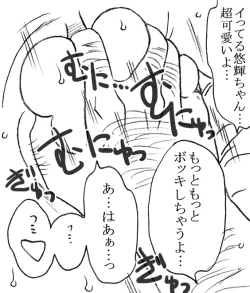 イってる悠輝ちゃん…
超可愛いよ…
むに…
むにっ
むにっ
ぎゅっ
もっともっと
ボッキしちゃうよ…
あ…はあぁ…っ
ぎゅっ
っ…
っ…♡